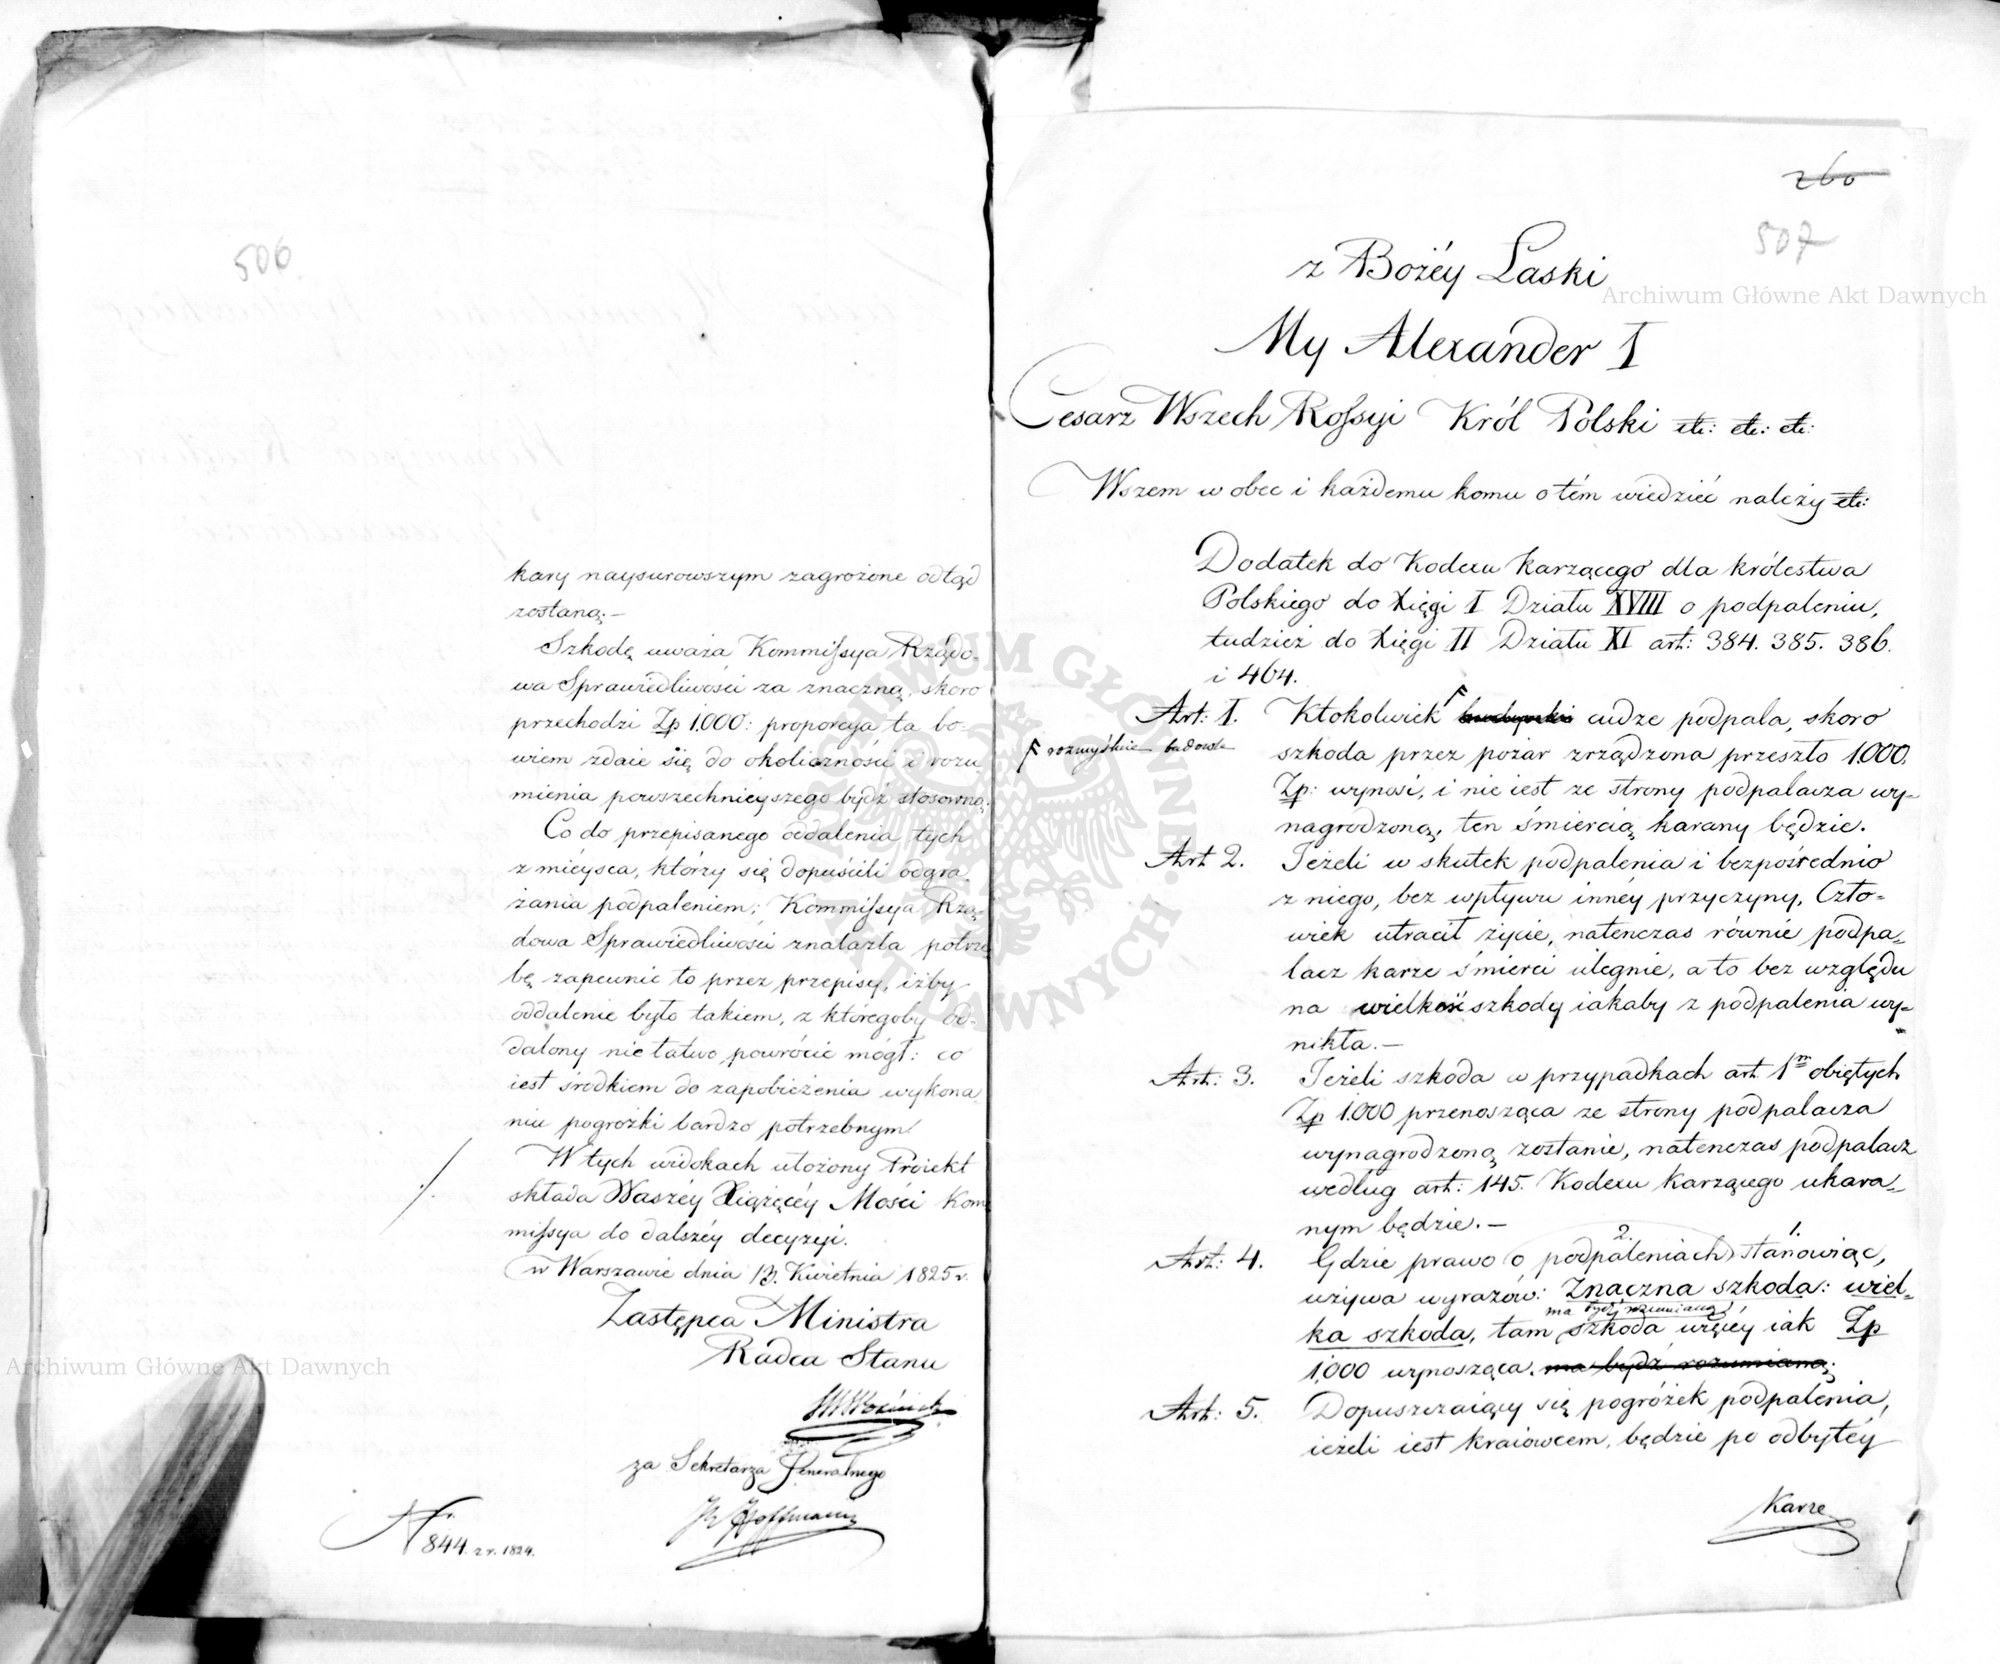 506
kary naysurowszym zagrożone odtąd
zostaną.—
Szkodę uważa Kommissya Rządo-
wa Sprawiedliwości za znaczną, skoro
przechodzi Zp 1.000: proporcya ta bo-
wiem zdaie się do okoliczności i rozu-
mienia powszechnieyszego bydź stosowną.
Co do przepisanego oddalenia tych
z mieysca, którzy się dopuścili odgra-
żania podpaleniem; Kommissya Rzą-
dowa Sprawiedliwości znalazła potrze-
bę zapewnić to przez przepisy, iżby
oddalenie było takiem, z któregoby od-
dalony nie łatwo powrócić mógł: co
iest środkiem do zapobieżenia wykona-
niu pogróżki bardzo potrzebnym!
W tych widokach ułożony Proiekt
składa Waszéy Xiążęcéy Mości Kom-
missya do dalszéy decyzyi.
w Warszawie dnia 13. Kwietnia 1825 r.
Zastępca Ministra
Radca Stanu
za Sekretarza Jeneralnego
Hoffmann
N 844. z r. 1824.
260
507
z Bożéy Łaski
My Alexander I
Cesarz Wszech Rossyi Król Polski etc: etc: etc:
Wszem w obec i każdemu komu o tém wiedzieć należy etc:
Dodatek do Kodexu Karzącego dla królestwa
Polskiego do Xięgi I Działu XVIII o podpaleniu,
tudzież do Xięgi II Działu XI art: 384. 385. 386.
i 464.
Art: 1. Ktokolwiek budynki cudze podpala, skoro
rozmyślnie budowle
szkoda przez pożar zrządzona przeszło 1.000.
Zp: wynosi, i nie iest ze strony podpalacza wy-
nagrodzoną, ten śmiercią karany będzie.
Art 2. Jeżeli w skutek podpalenia i bezpośrednio
z niego, bez wpływu innéy przyczyny, Czło-
wiek utracił życie, natenczas równie podpa-
lacz karze śmierci ulegnie, a to bez względu
na wielkość szkody iakaby z podpalenia wy-
nikła.—
Art: 3. Jeżeli szkoda w przypadkach art. 1m obiętych
Zp 1.000 przenosząca ze strony podpalacza
wynagrodzoną zostanie, natenczas podpalacz
według art: 145. Kodexu Karzącego ukara-
nym będzie.—
2. 1.
Art: 4. Gdzie prawo o podpaleniach stanowiąc,
używa wyrazów: Znaczna szkoda: wiel-
ma bydź rozumianą
ka szkoda, tam szkoda więcéy iak Zp
1,000 wynosząca. ma bydź rozumianą;
Art: 5. Dopuszczaiący się pogróżek podpalenia,
ieżeli iest kraiowcem, będzie po odbytéy
Karze
Archiwum Główne Akt Dawnych
Archiwum Główne Akt Dawnych
ARCHIWUM GŁÓWNE AKT DAWNYCH